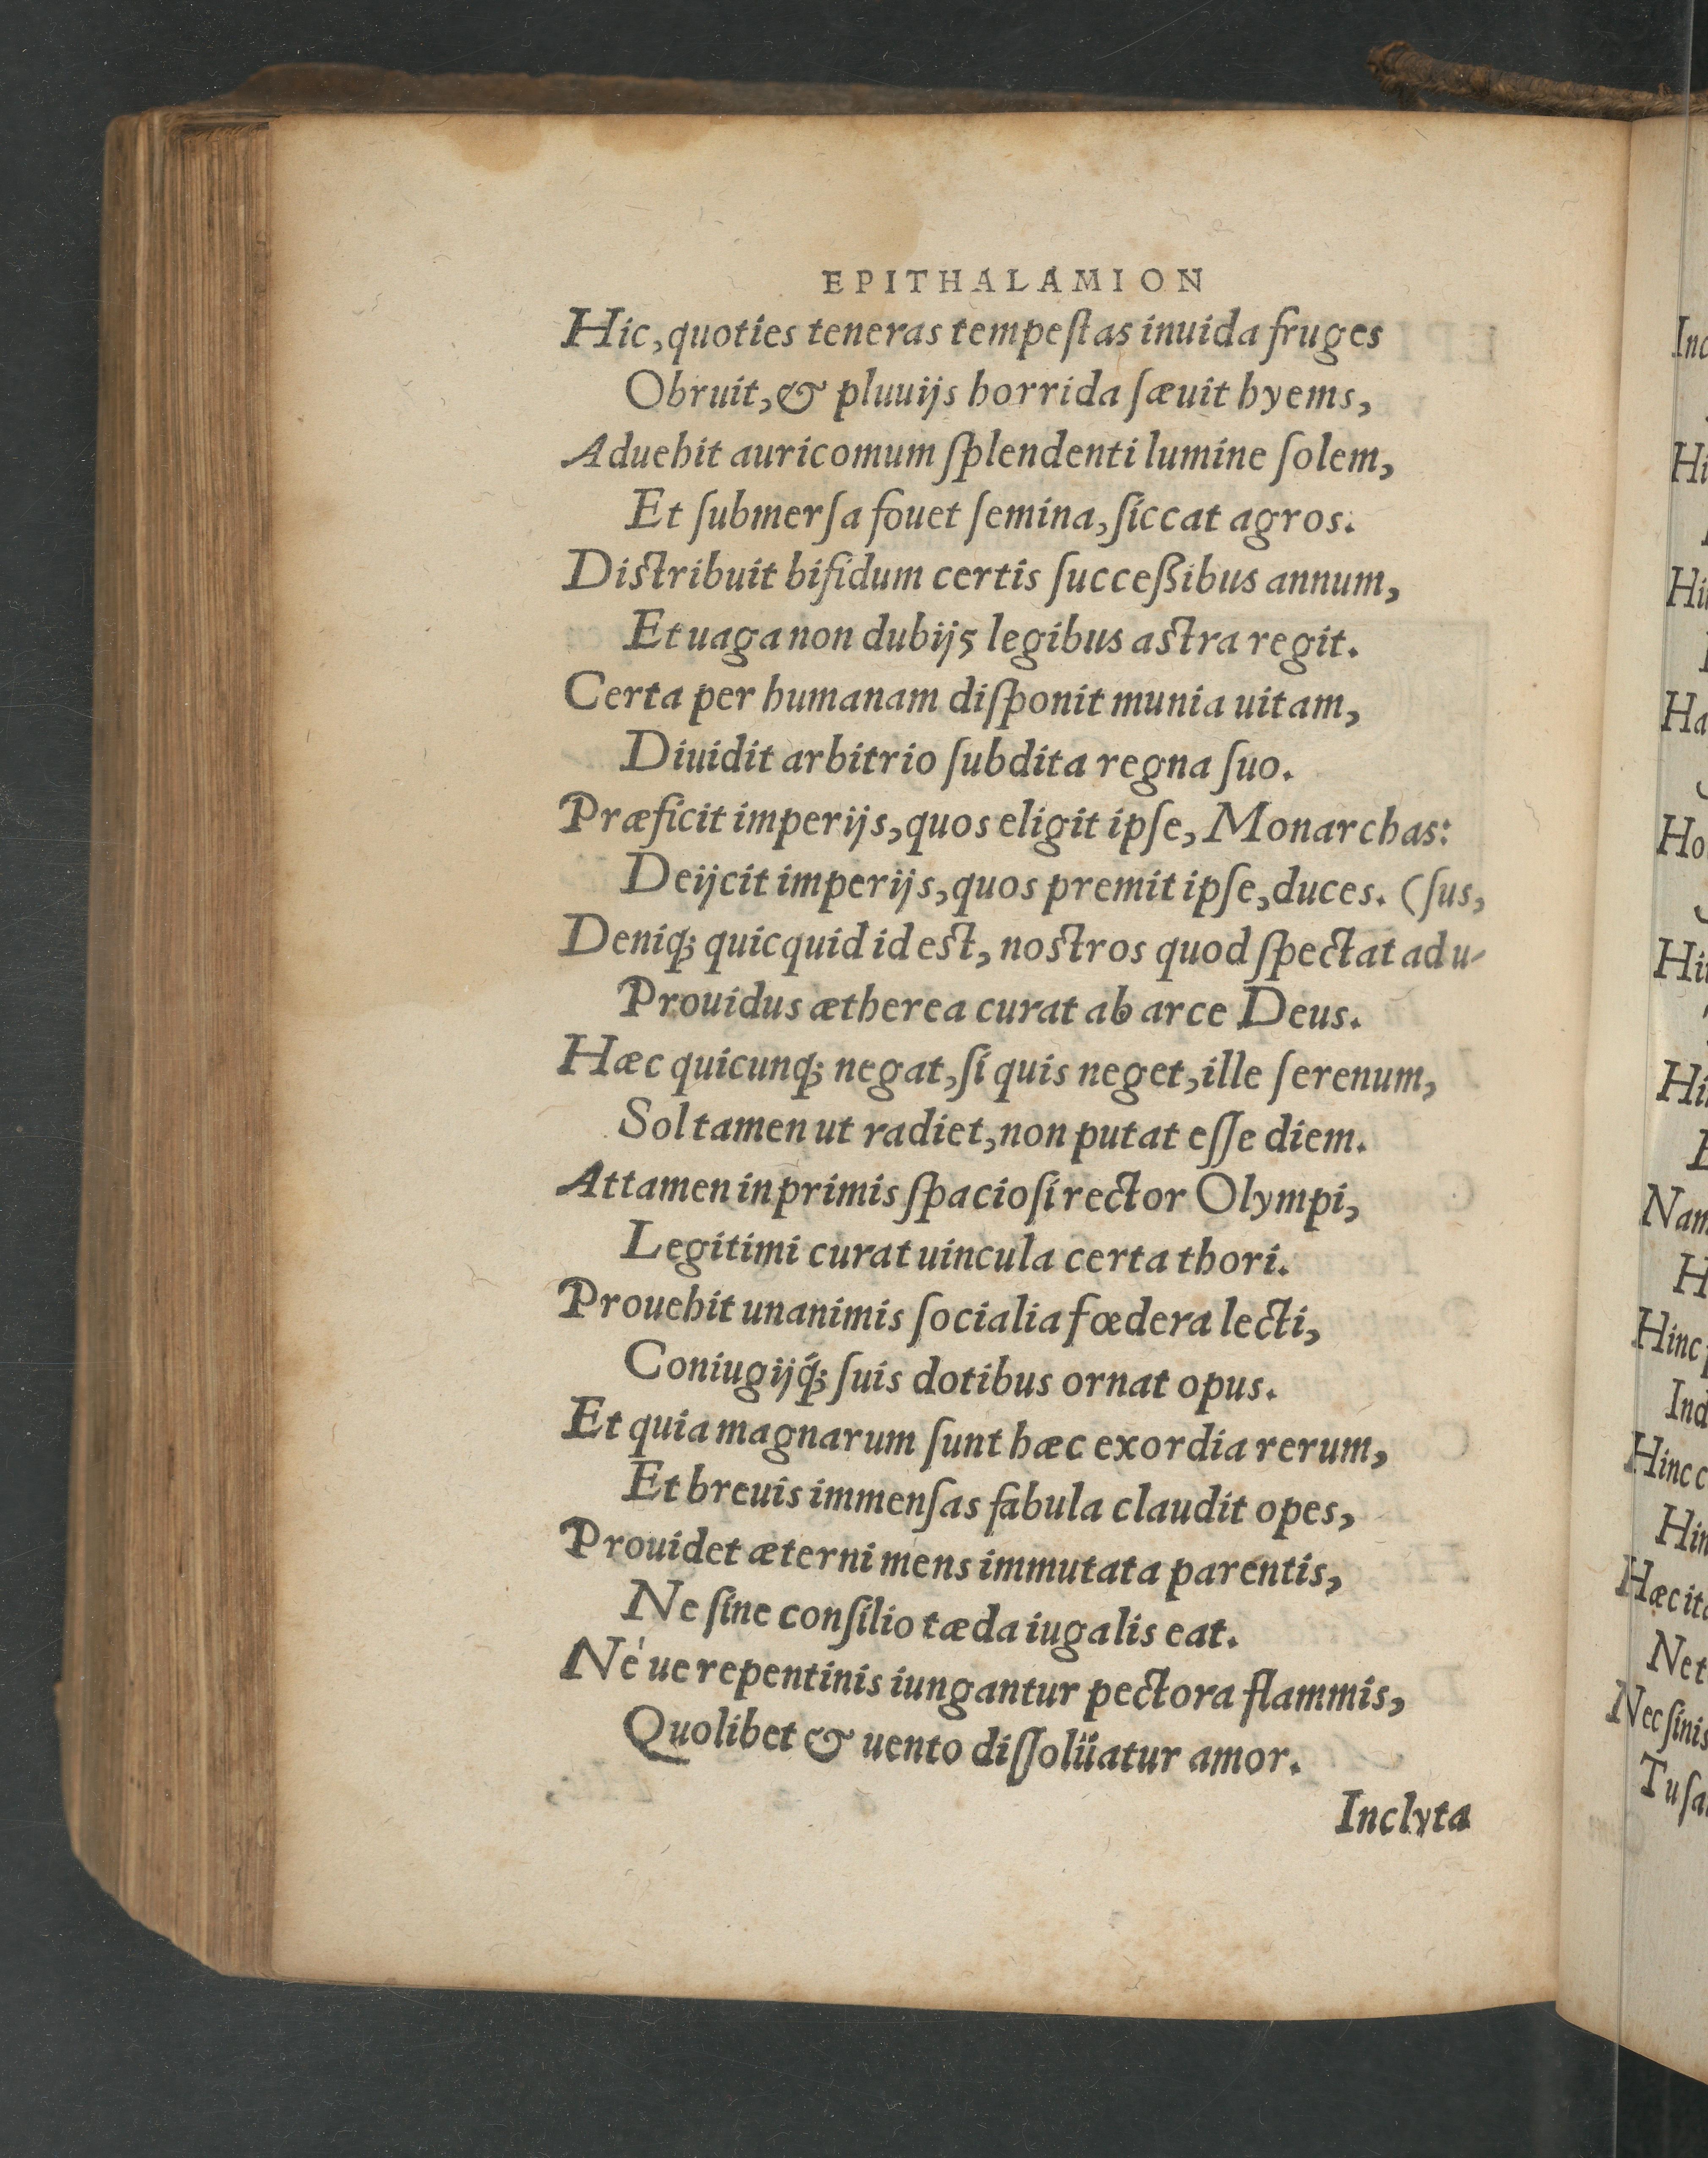 EPITHALAMION
Hic, quoties teneras tempeſtas inuida fruges
Obruit, & pluuijs horrida ſæuit hyems,
Aduehit auricomum ſplendenti lumine ſolem,
Et ſubmerſa fouet ſemina, ſiccat agros.
Diſtribuit bifidum certis ſucceßibus annum,
Et uaga non dubijs legibus aſtra regit.
Certa per humanam diſponit munia uitam,
Diuidit arbitrio ſubdita regna ſuo.
Præficit imperijs, quos eligit ipſe, Monarchas:
Deijcit imperijs, quos premit ipſe, duces. (ſus,
Deniq; quicquid id eſt, noſtros quod ſpectat ad u-
Prouidus ætherea curat ab arce Deus.
Hæc quicunq; negat, ſi quis neget, ille ſerenum,
Sol tamen ut radiet, non putat eſſe diem.
Attamen in primis ſpacioſi rector Olympi,
Legitimi curat uincula certa thori.
Prouehit unanimis ſocialia fœdera lecti,
Coniugijq́; ſuis dotibus ornat opus.
Et quia magnarum ſunt hæc exordia rerum,
Et breuis immenſas fabula claudit opes,
Prouidet æterni mens immutata parentis,
Ne ſine conſilio tæda iugalis eat.
Né ue repentinis iungantur pectora flammis,
Quolibet & uento diſſolüatur amor.
Inclyta